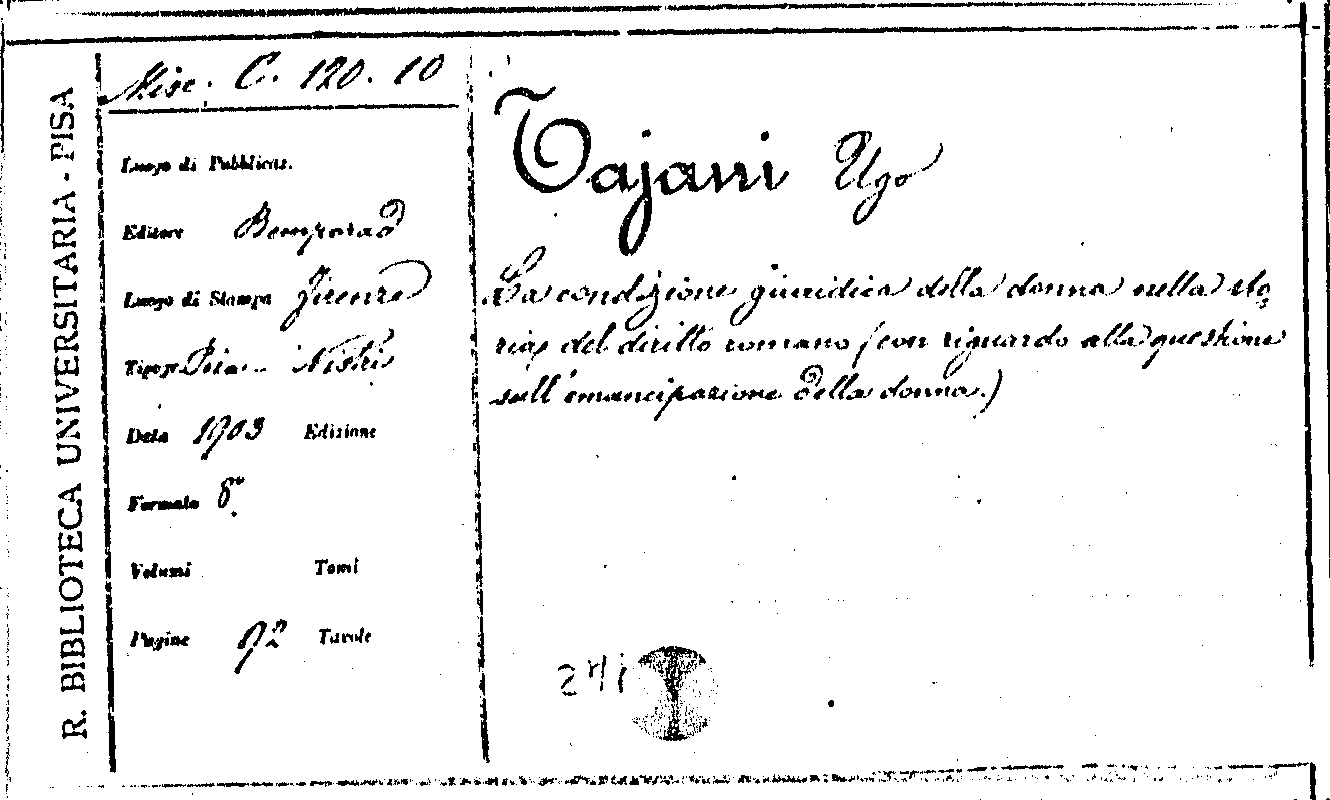 R. BIBLIOTECA UNIVERSITARIA - PISA
Misc. C. 120. 10
Luogo di Pubblicaz.
Editore Bemporad
Luogo di Stampa Firenze
Tipogr. Pisa Nistri
Data 1903 Edizione
Formato 8°
Volumi Tomi
Pagine 92 Tavole
Tajani Ugo
La condizione giuridica della donna nella sto
ria del diritto romano (con riguardo alla questione
sull'emancipazione della donna.)
241